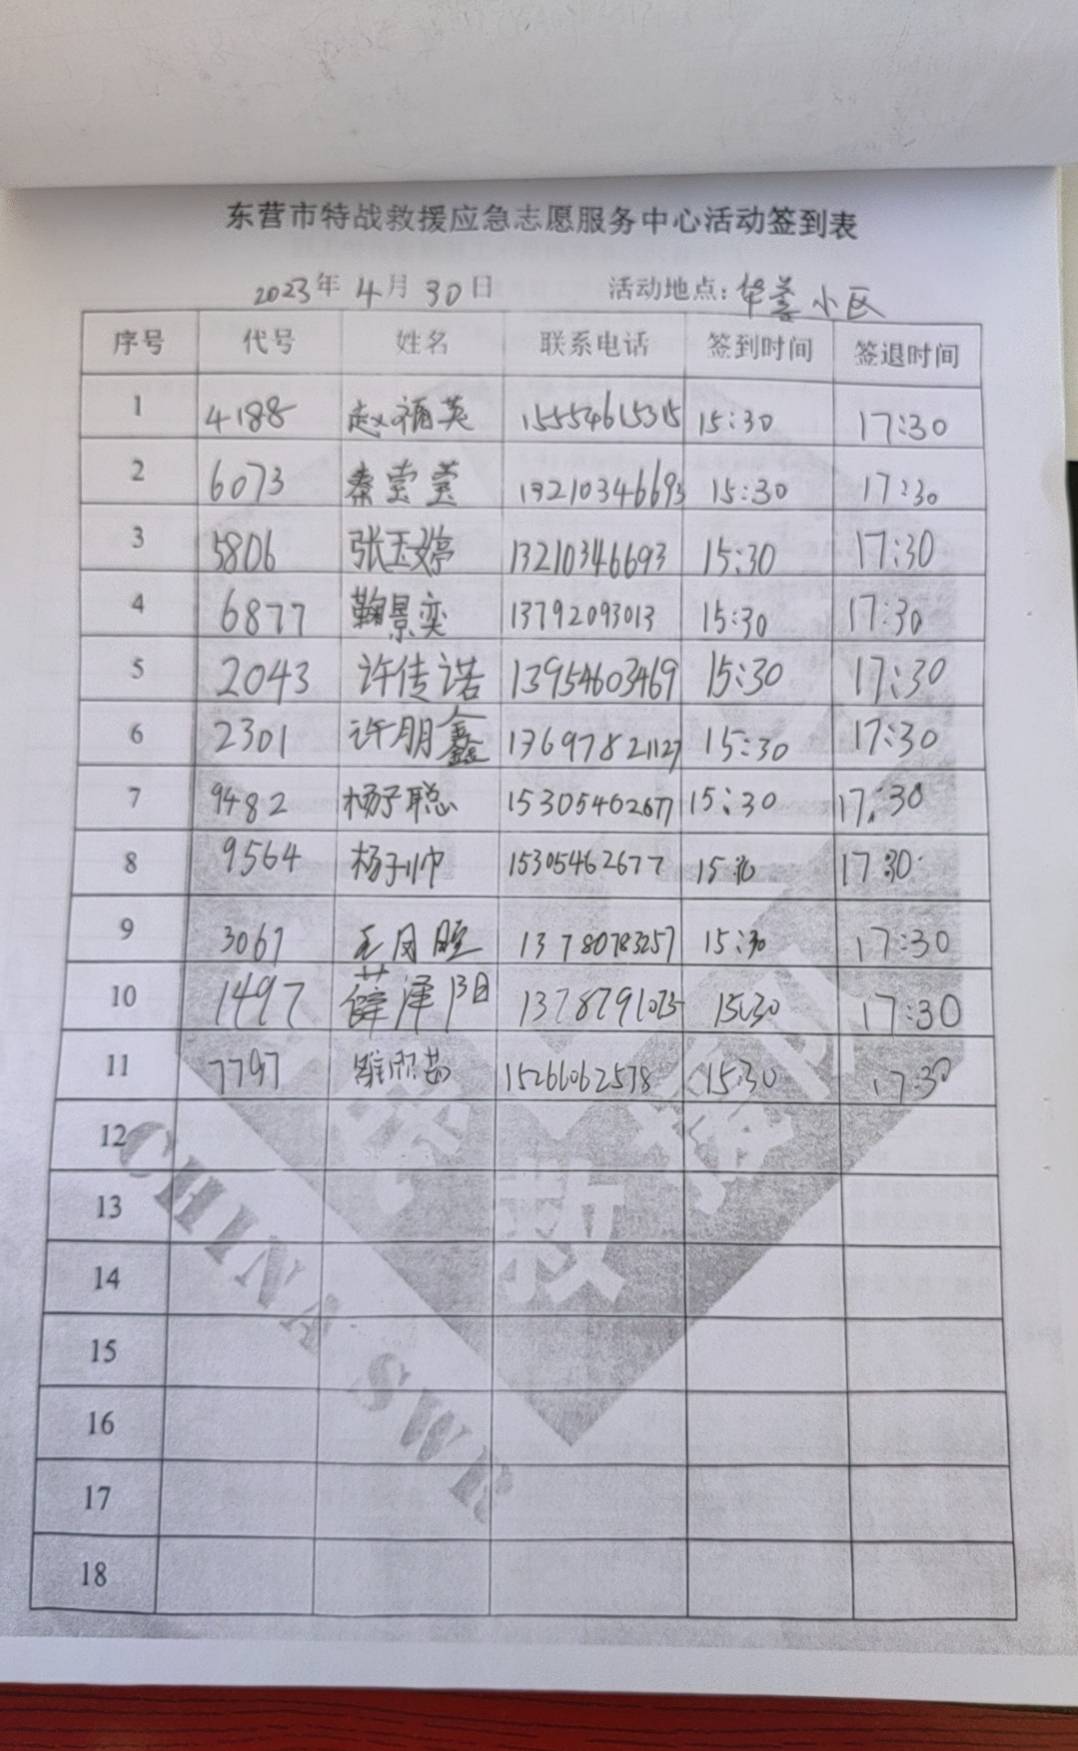 东营市特战救援应急志愿服务中心活动签到表
2023年 4月 30日 活动地点: 华萃小区
序号 代号 姓名 联系电话 签到时间 签退时间
1 4188 赵福英 15554615315 15:30 17:30
2 6073 秦莹莹 13210346693 15:30 17:30
3 5806 张玉婷 13210346693 15:30 17:30
4 6877 鞠景奕 13792093013 15:30 17:30
5 2043 许传诺 13954603469 15:30 17:30
6 2301 许朋鑫 13697821127 15:30 17:30
7 9482 杨子聪 15305462677 15:30 17:30
8 9564 杨子帅 15305462677 15:30 17:30
9 3067 王凤 13780783257 15:30 17:30
10 1497 薛泽阳 13787910 15:30 17:30
11 7797 15266062578 15:30 17:30
12
13
14
15
16
17
18
救
CHINA SWR